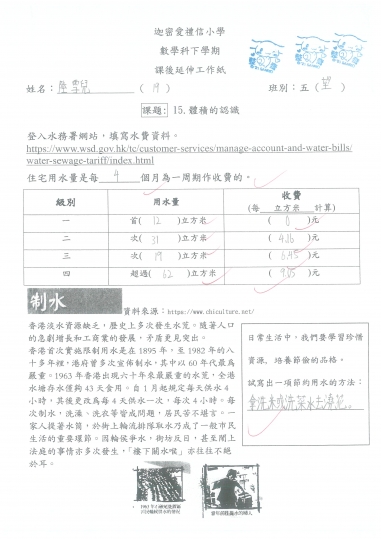 迦密愛禮信小學
數學科下學期
課後延伸工作紙
姓名： ( 19 ) 班別：五 ( 望 )
課題： 15.體積的認識
登入水務署網站，填寫水費資料。
https://www.wsd.gov.hk/tc/customer-services/manage-account-and-water-bills/
water-sewage-tariff/index.html
住宅用水量是每 4 個月為一周期作收費的。
級別 用水量 收費
(每 立方米 計算)
一 首( 12 )立方米 ( 0 )元
二 次( 31 )立方米 ( 4.16 )元
三 次( 19 )立方米 ( 6.45 )元
四 超過( 62 )立方米 ( 9.05 )元
制水
資料來源：https://www.cbleulture.net/
香港淡水資源缺乏，歷史上多次發生水荒。隨著人口
的急劇增長和工商業的發展，矛盾更見突出。
香港首次實施限制用水是在 1895 年，至 1982 年的八
十多年裡，港府曾多次宣佈制水，其中以 60 年代最為
嚴重。1963 年香港出現六十年來最嚴重的水荒，全港
水塘存水僅夠 43 天食用。自 1 月起規定每天供水 4
小時，其後更改為每 4 天供水一次，每次 4 小時。每
次制水，洗澡、洗衣等皆成問題，居民苦不堪言。一
家人提著水筒，於街上輪流排隊取水乃成了一般市民
生活的重要環節。因輪侯爭水，街坊反目，甚至鬧上
法庭的事情亦多次發生，「樓下關水喉」亦往往不絕
於耳。
日常生活中，我們要學習珍惜
資源，培養節儉的品格。
試寫出一項節約用水的方法：
拿洗米或洗菜水去澆花。